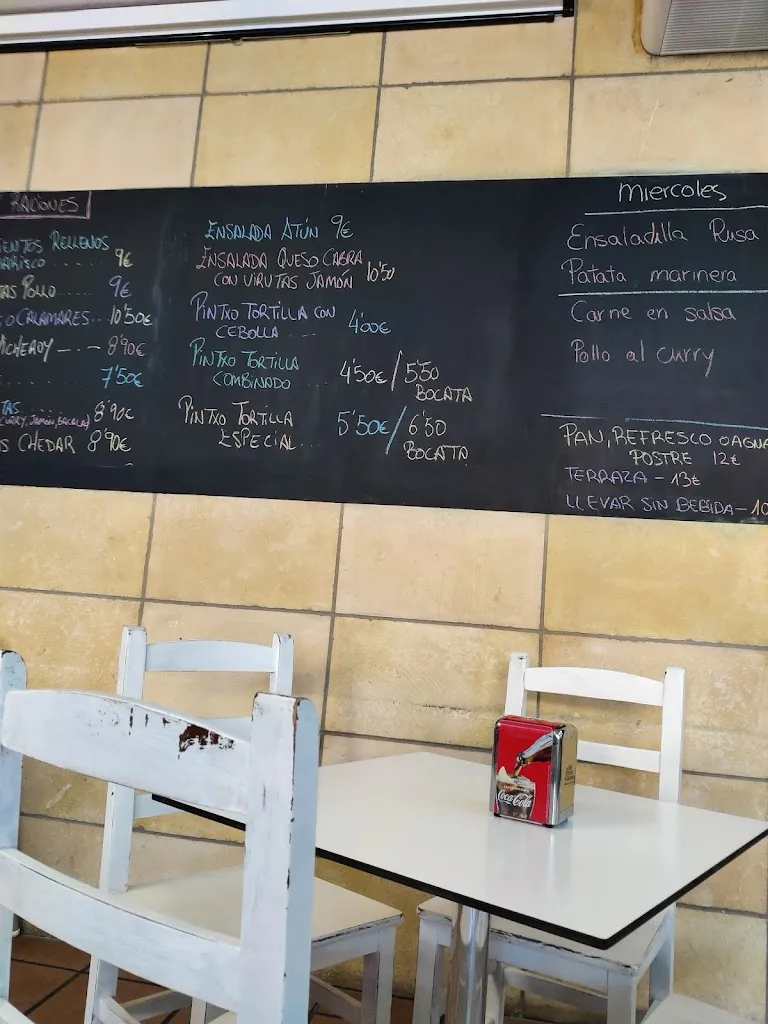 RACIONES
IENTES RELLENOS
MARISCO ..... 9€
AS POLLO ..... 9€
O CALAMARES... 10'50€
8'90€
7'50€
TAS 8'90€
(CURRY, JAMÓN, BACALAO)
S CHEDAR 8'90€
ENSALADA ATÚN 9€
ENSALADA QUESO CABRA
CON VIRUTAS JAMÓN 10'50
PINTXO TORTILLA CON
CEBOLLA .... 4'00€
PINTXO TORTILLA
COMBINADO .... 4'50€/5'50
BOCATA
PINTXO TORTILLA 5'50€/6'50
ESPECIAL... BOCATA
MIERCOLES
Ensaladilla Rusa
Patata marinera
Carne en salsa
Pollo al curry
PAN, REFRESCO O AGUA
POSTRE 12€
TERRAZA - 13€
LLEVAR SIN BEBIDA - 10
Coca-Cola